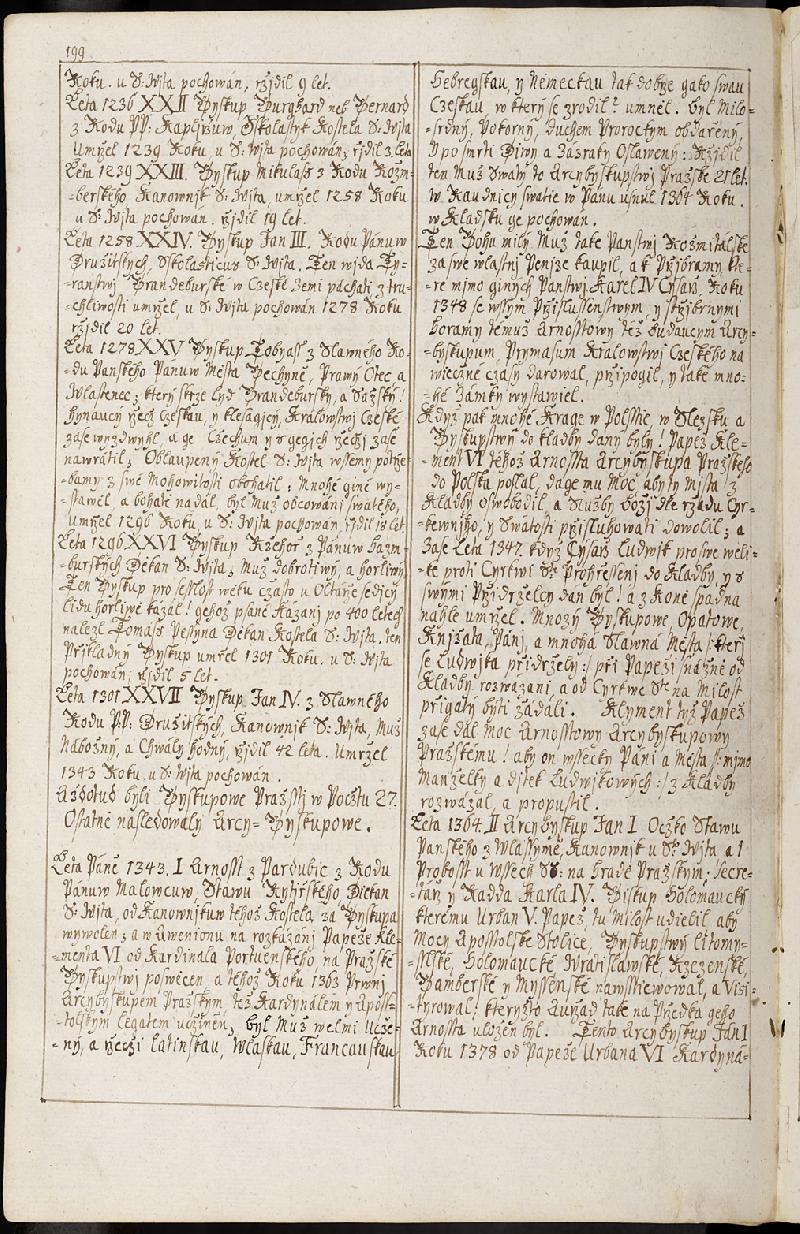 199
Roku. u S: Wjta pochowán, ržjdil 9 let.
Léta 1236 XXII Byskup Burghard neb Bernard
z Rodu PP: Kapljržuw, Sskolastyk Kostela S: Wjta
Umržel 1239 Roku, u S: Wjta pochowán, ržjdil 3 léta
Léta 1239 XXIII. Byskup Mikulass z Rodu Rozm-
-berského Kanownjk S: Wjta, umržel 1258 Roku
u S: Wjta pochowán. ržjdil 19 let.
Léta 1258 XXIV. Byskup Jan III. Rodu Pánuw
Dražitských, Skolasticus S: Wjta. Ten wida Ty-
-ranstwj Brandeburské w Czeské Zemi páchati z tru-
-chliwosti umržel, u S: Wjta pochowán 1278 Roku
ržjdil 20 let.
Léta 1278 XXV Byskup Tobyáss z Slawného Ro-
-du Panského Pánuw Města Bechyně, Prawý Otec a
Wlastenec; který skrze lyd Brandeburský, a Sasský/
hynaucý ržeč Czeskau, y klesagjcý Králowstwj Czeské
zase wyzdwyhl, a ge Czechum y w gegjch ržečj zase
nawrátil; Obloupený Kostel S: Wjta wssemy potrže-
-bamy z swé Mohowitosti obohatil: Mnohé giné wy-
-stawěl, a bohatě nadál, byl Muž obcowánj swatého,
umržel 1296 Roku, u S: Wjta pochowán, ržjdil 18 let
Léta 1296 XXVI Byskup Ržehorž z Pánuw hazm-
-burských Děkan S: Wjta; Muž dobrotiwý, a horliwý
Ten Byskup pro sesslost wěku často u Oltárže sedjcý
lidu horliwě kázal/ gehož psané Kázanj po 400 letech
nalezl Tomáss Pessyna Děkan Kostela S: Wjta. ten
Přjkladný Byskup umržel 1301 Roku. u S: Wjta
pochowán, ržjdil 5 let.
Léta 1301 XXVII Byskup Jan IV. z Slawného
Rodu PP: Dražitských, Kanownjk S: Wjta, Muž
Nábožný, a Chwály hodný, ržjdil 42 léta. Umržel
1343 Roku, u S: Wjta pochowán.
Až dotud byli Byskupowé Pražsstj w Pocžtu 27.
Ostatně následowaly Arcy-Byskupowé.
Léta Páně 1343. I Arnosst z Pardubic z Rodu
Pánuw Malowcuw, Stawu Rytjržského Děkan
S: Wjta, od Kanownjkuw téhož Kostela, za Byskupa
wywolen; a w Awenionu na rozkázánj Papeže Kle-
-menta VI od Kardinála Portuenského na Pražské
Byskupstwj poswěcen, a téhož Roku 1363 Prwnj
Arcybyskupem Pražským, též Kardynálem y Aposs-
-tolským legátem učiněn; byl Muž welmi Uče-
-ný, a ržečj Latinskau, Wlaskau, Francauskau
Hebregskau, y Německau tak dobrže gako swau
Czeskau w který se zrodil umněl. byl Milo-
-srdný, Pokorný, Duchem Prorockým obdarženỳ,
J po smrti Diwy a Zázraky Oslawený: Ržjdil
ten Muž Swatý to Arcybyskupstwj Pražské 21 let.
w Raudnicy swatie w Pánu usnul 1364 Roku.
w Kladsku ge pochowán.
Ten Bohu milý Muž také Panstwj Rožmitálské
za swé wlastnj Penjze kaupil, a k Pržjbramy kte-
-ré mimo giných Panstwj Karel IV Cysarž, Roku
1348 se wssým Pržjslussenstwym, y stržjbrnými
horamy témuž Arnosstowy též budaucým Arcy-
-byskupum, Prymasum Králowstwj Czeského na
wiecžné cžasy darowal, pržipogil, y také mno-
-hé Zámky wystawiel.
Když pak mnohé Krage w Polsstě, w Slezsku a
Byskupstwy do kladby dany byly/ Papež Kle-
-ment VI téhož Arnossta Arcybyskupa Pražského
do Polska poslal, dage mu Moc aby ty mjsta z
Kladby oswobodil, a Služby božj dle ržádu Cyr-
-kewnjho, y Swátosti pržisluhowati dowolil; a
Zase Léta 1347. když Cysarž Ludwjk pro swé weli-
-ké proti Cyrkwi S: Prohržessenj do Kladby y s
swými Pržjdržělcy dán byl/ a z Koně spadna
náhle umržel. Mnozý Byskupowé, Opatowé,
Knjžata, Pánj, a mnohá Slawná Města /: kterj
se Ludwjka pržidrželý :/ pri Papeži snažně od
Kladby rozwázani, a od Cyrkwe S: na Milost
prigaty býti žádáli. Klyment týž Papež
zase dal Moc Arnosstowy Arcybyskupowy
Pražskému/ aby on wssecky Páni a Města /: mimo
Manželky a djtek Ludwjkowých :/ z Kladby
rozwázal, a propustil.
Léta 1364. II Arcybyskup Jan I Oczko Stawu
Panského z Wlassymě, Kanownjk u S: Wjta a 1
Probosst u Wssech SS: na hradě Pražským; Secre-
-tárž, y Radda Karla IV. Biskup Holomaucký
kterému Urban V. Papež, tu Milost udielil aby
Mocy Aposstolské Stolice, Byskupstwý Litomy-
-sslské, Holomaucké, Wratislawské, Ržezenské,
Bamberské y Myssenské nawsstiewowal, a Visi-
-tyrowal; kterýžto Auržad také na Pržedka geho
Arnossta uložen byl. Tento Arcybyskup Jan I
Roku 1378 od Papeže Urbana VI Kardyná-